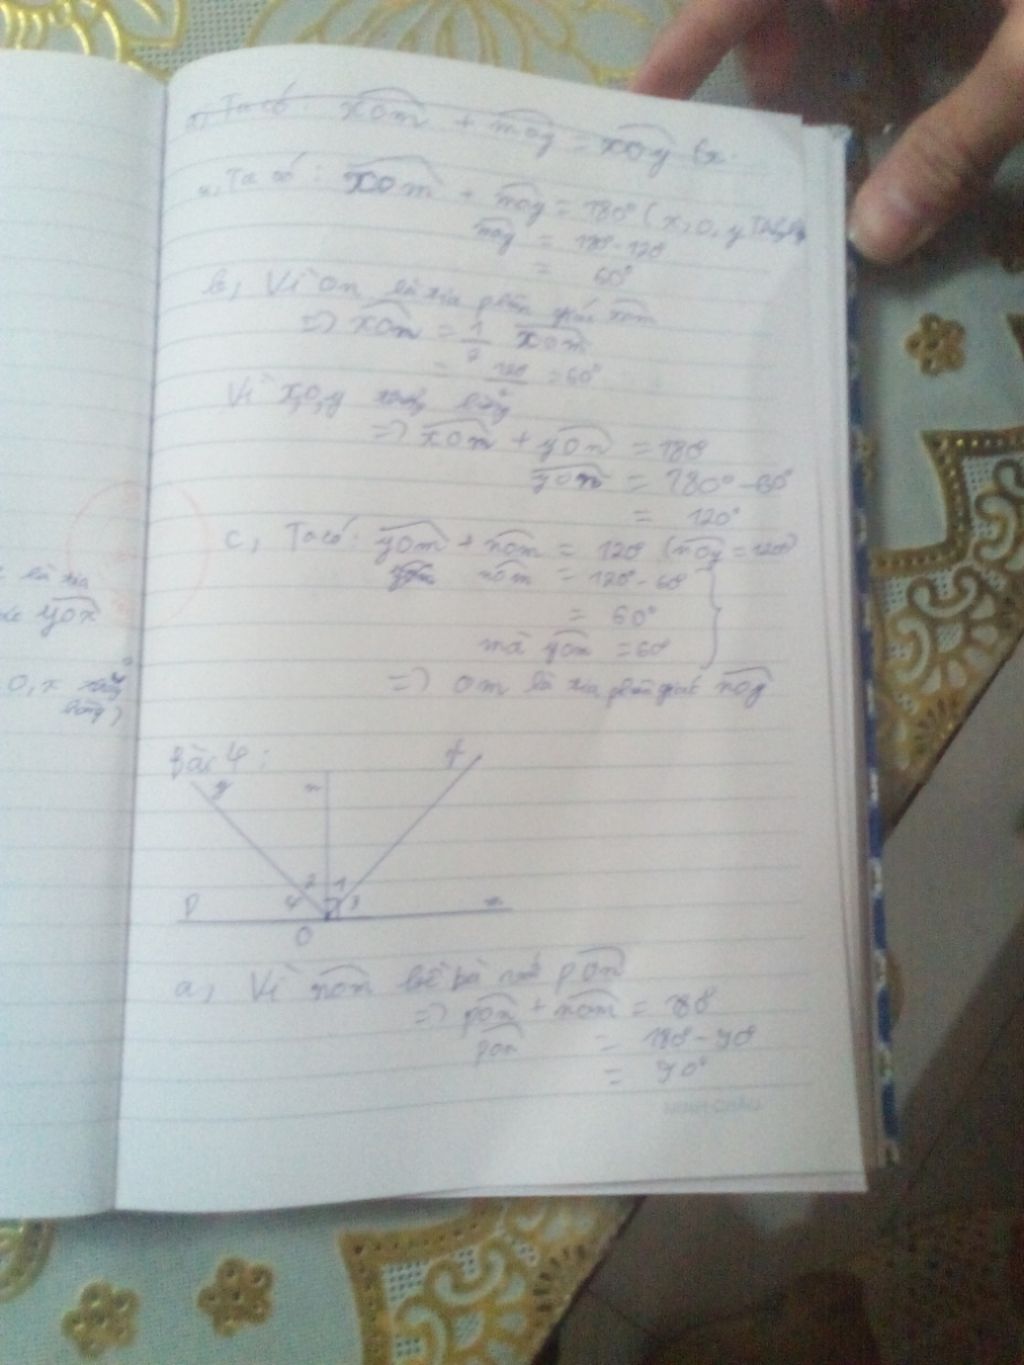 a, Ta có: xOm + mOy = xOy
a, Ta có: xOm + mOy = 180° (x, O, y
mOy = 180 - 120
= 60°
b, Vì On là tia phân giác xOm
=> xOn = 1/2 xOm
= 120/2 = 60°
Vì x,O,y thẳng hàng
=> xOn + yOn = 180°
yOn = 180° - 60°
= 120°
c, Ta có: yOm + nOm = 120° (nOy = 120°)
nOm = 120° - 60°
= 60°
mà yOm = 60°
=> Om là tia phân giác nOy
là tia
yOx
O, x thẳng
hàng)
bài 4:
y
n
t
2 1
P 4 3 m
O
a, Vì nOm kề bù với pOn
=> pOn + nOm = 180°
pOn = 180° - 90°
= 90°